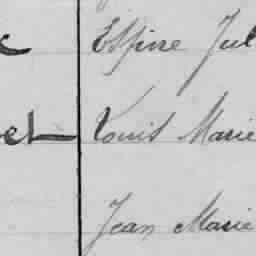 Espine Jul
et Louis Marie
Jean Marie